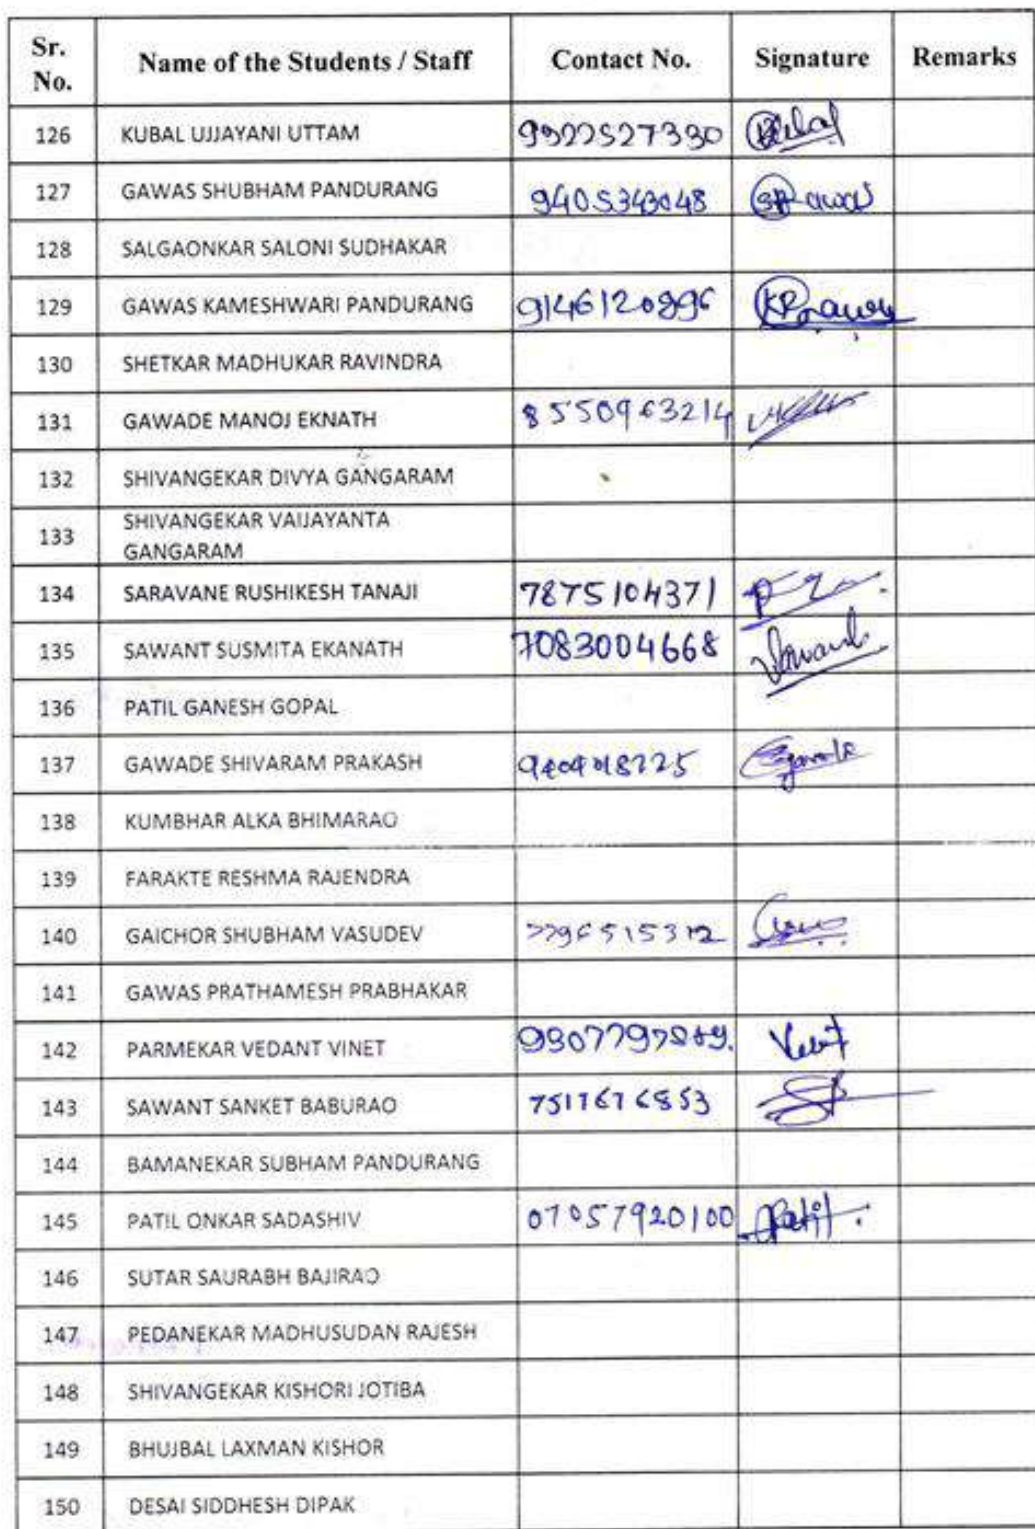 Sr. No. Name of the Students / Staff Contact No. Signature Remarks
126 KUBAL UJJAYANI UTTAM 9922527330
127 GAWAS SHUBHAM PANDURANG 9405343048
128 SALGAONKAR SALONI SUDHAKAR
129 GAWAS KAMESHWARI PANDURANG
130 SHETKAR MADHUKAR RAVINDRA
131 GAWADE MANOJ EKNATH 8550963214
132 SHIVANGEKAR DIVYA GANGARAM
133 SHIVANGEKAR VAIJAYANTA
GANGARAM
134 SARAVANE RUSHIKESH TANAJI 7875104371
135 SAWANT SUSMITA EKANATH 7083004668 Sawant
136 PATIL GANESH GOPAL
137 GAWADE SHIVARAM PRAKASH
138 KUMBHAR ALKA BHIMARAO
139 FARAKTE RESHMA RAJENDRA
140 GAICHOR SHUBHAM VASUDEV
141 GAWAS PRATHAMESH PRABHAKAR
142 PARMEKAR VEDANT VINET
143 SAWANT SANKET BABURAO 7517676853
144 BAMANEKAR SUBHAM PANDURANG
145 PATIL ONKAR SADASHIV 07057920100 Patil
146 SUTAR SAURABH BAJIRAO
147 PEDANEKAR MADHUSUDAN RAJESH
148 SHIVANGEKAR KISHORI JOTIBA
149 BHUJBAL LAXMAN KISHOR
150 DESAI SIDDHESH DIPAK